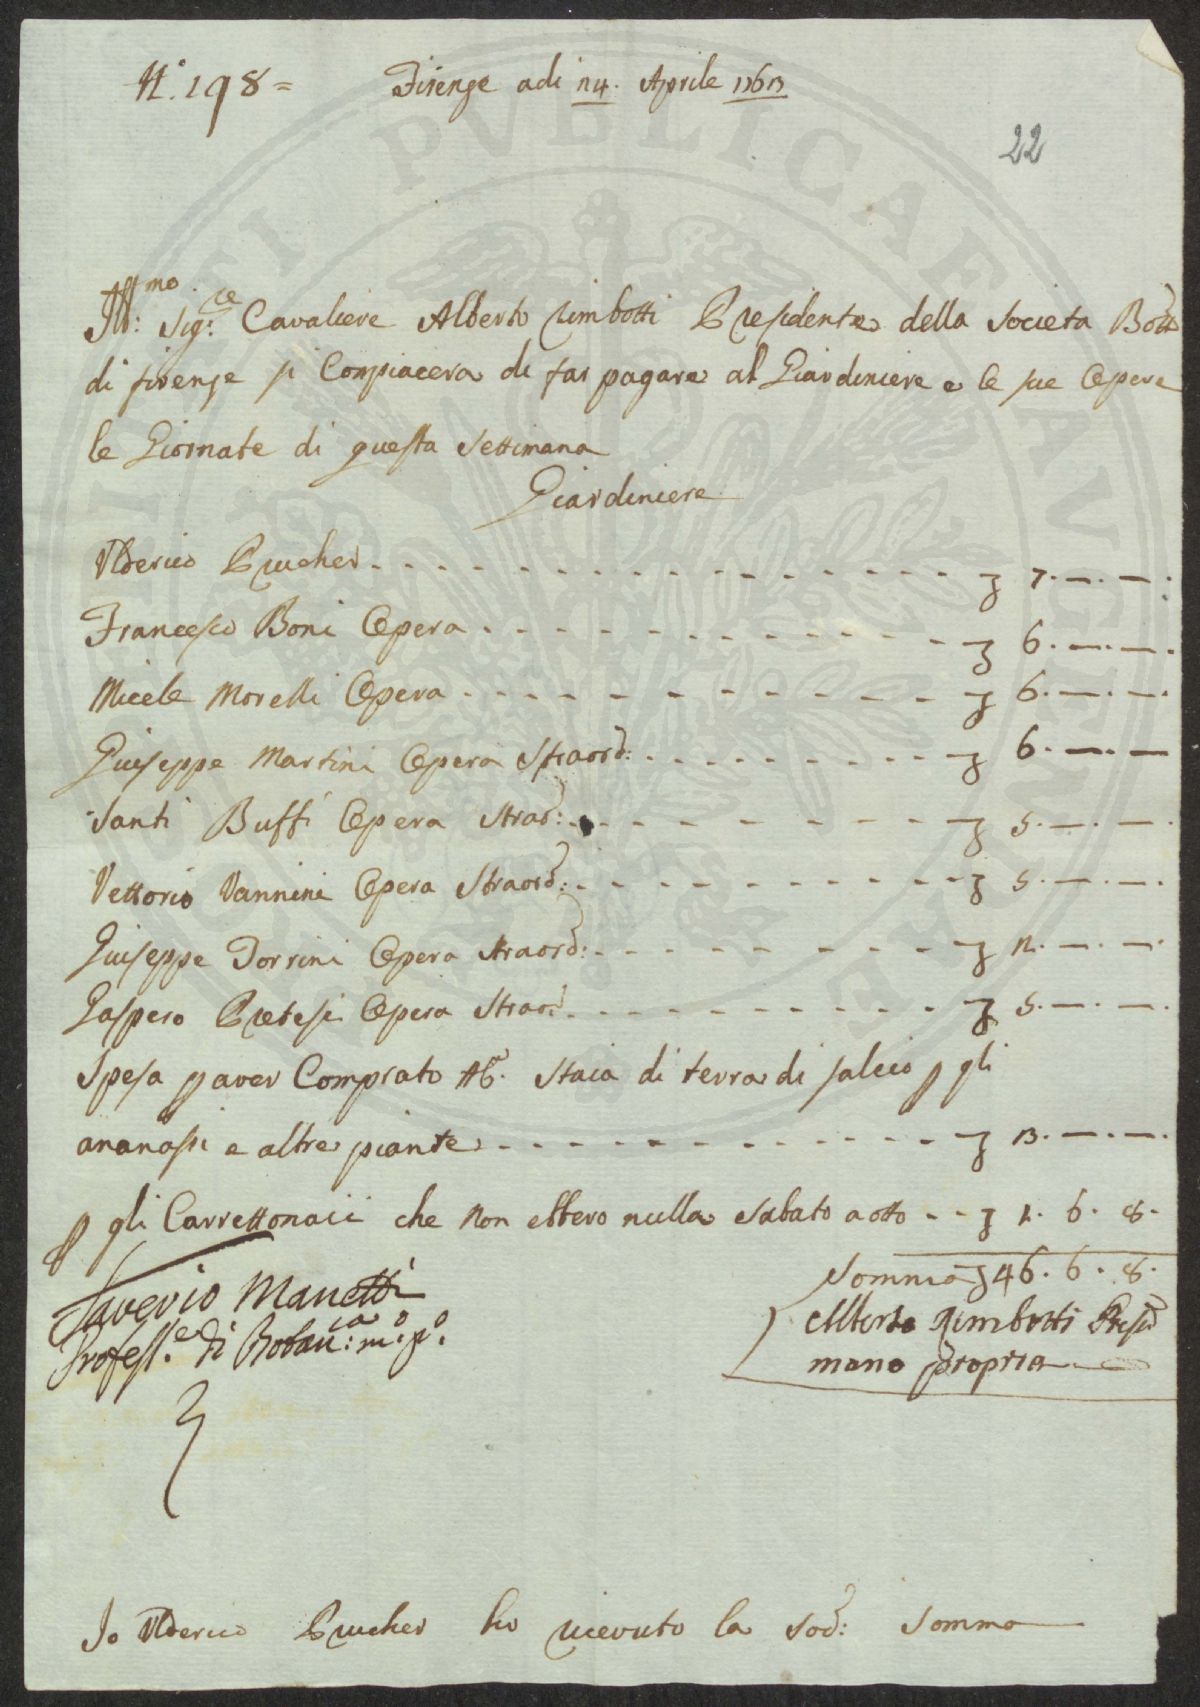 N.° 198 = Firenze adi 24. Aprile 1762
22
Ill:mo Sig:re Cavaliere Alberto Rimbotti Presidente della Societa Bott
di firenze si Compiacera di far pagare al Giardiniere e le sue Opere
le Giornate di questa Settimana
Giardiniere
Ulderico Prucher - - - ʒ 7. — . — .
Francesco Boni Opera - - - ʒ 6. — . — .
Micele Morelli Opera - - - ʒ 6. — . — .
Giuseppe Martini Opera Straord: - - - ʒ 6. — . —
Santi Buffi Opera Strad: - - - ʒ 5. — . — .
Vettorio Vannini Opera Straord: - - - ʒ 5. — . — .
Giuseppe Torrini Opera Straord: - - - ʒ 2. — . — .
Gaspero Pretesi Opera Strad: - - - ʒ 5. — . — .
Spesa p aver Comprato Staia di terra di salcio p gli
ananassi e altre piante - - - ʒ 3. — . — .
p gli Carrettonaii che non ebbero nulla Sabato a otto - - ʒ 1. 6. 8.
Somma ʒ 46. 6. 8.
Saverio Manetti
Profess.e di Botan:ca m:o p:o
Alberto Rimbotti Presid
mano propria
Io Ulderico Prucher ho ricevuto la Sod: Somma